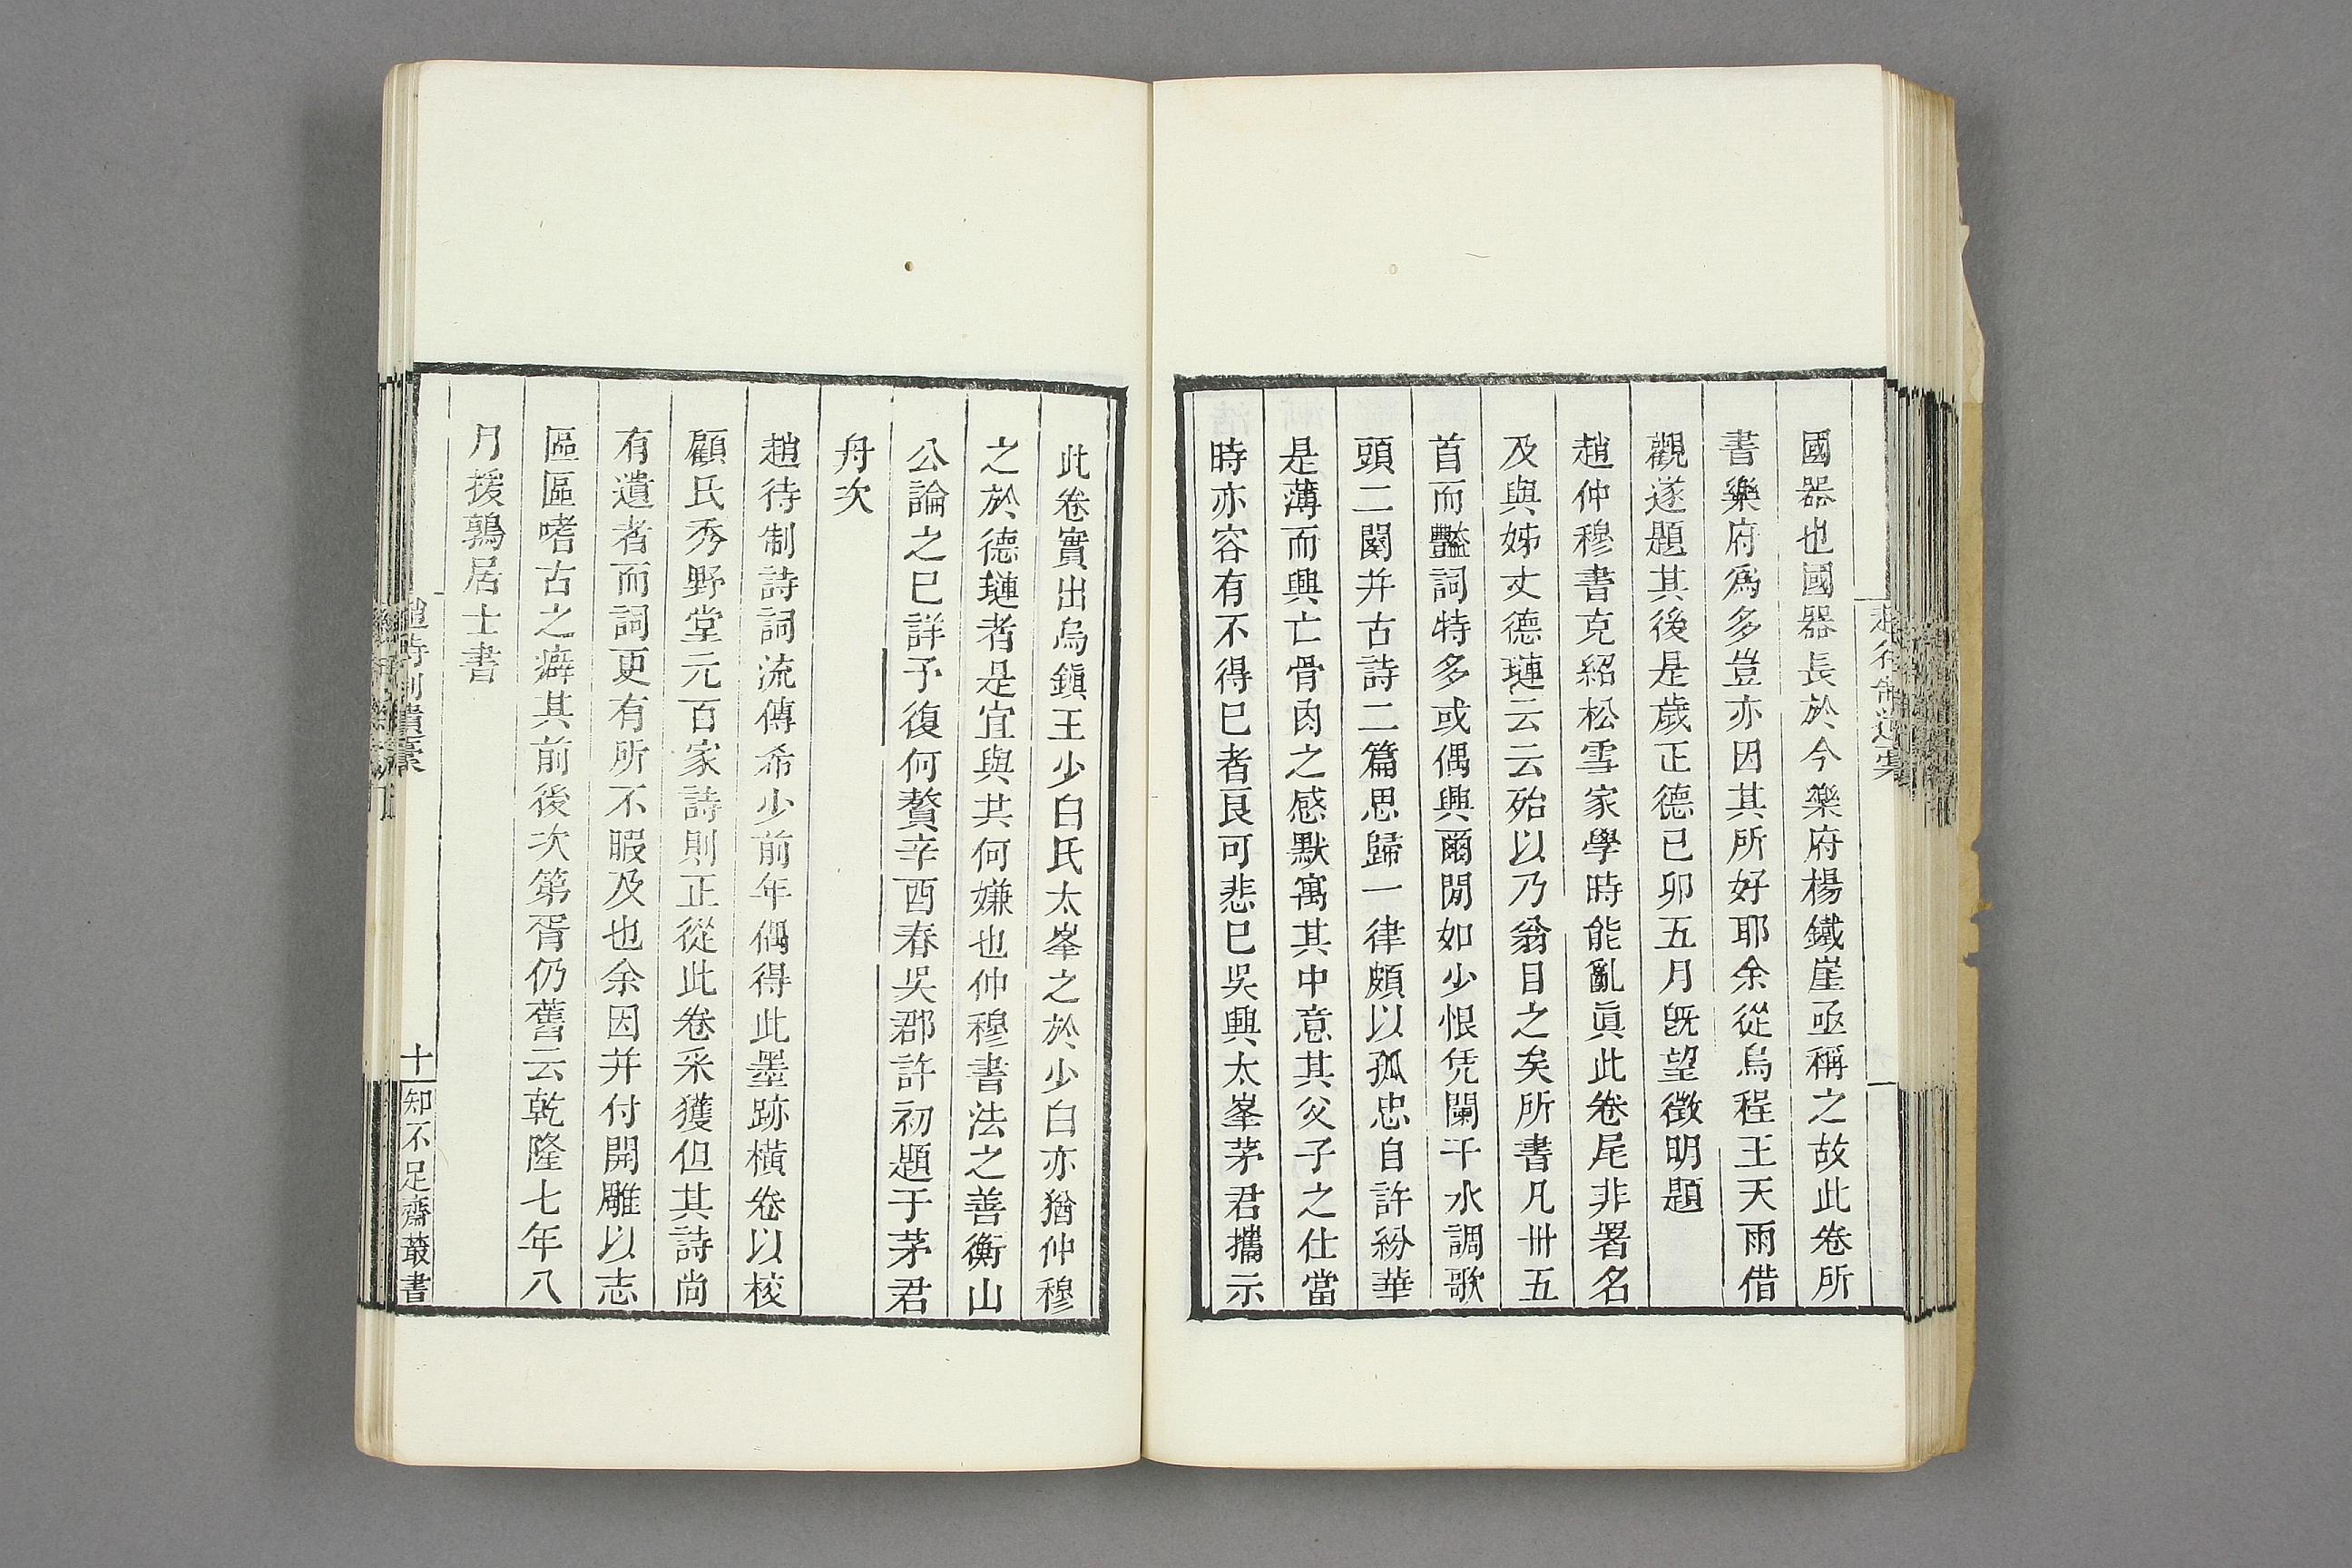 國器也國器長於今樂府楊鐵崖亟稱之故此卷所
書樂府爲多豈亦因其所好耶余從烏程王天雨借
觀遂題其後是歲正德己卯五月旣望徵明題
趙仲穆書克紹松雪家學時能亂眞此卷尾非署名
及與姊丈德璉云云殆以乃翁目之矣所書凡卌五
首而豔詞特多或偶興爾閒如少恨凭闌干水調歌
頭二闋并古詩二篇思歸一律頗以孤忠自許紛華
是薄而興亡骨肉之感默寓其中意其父子之仕當
時亦容有不得已者良可悲已吳興太峯茅君攜示
此卷實出烏鎭王少白氏太峯之於少白亦猶仲穆
之於德璉者是宜與其何嫌也仲穆書法之善衡山
公論之已詳予復何贅辛酉春吳郡許初題于茅君
舟次
趙待制詩詞流傳希少前年偶得此墨跡橫卷以校
顧氏秀野堂元百家詩則正從此卷采獲但其詩尚
有遺者而詞更有所不暇及也余因并付開雕以志
區區嗜古之癖其前後次第胥仍舊云乾隆七年八
月援鶉居士書
趙待制遺稾
十
知不足齋叢書